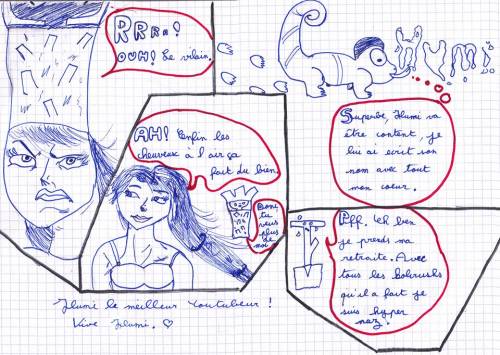 RRRR!
OUH! Le vilain.
AH! Enfin les
cheveux à l'air ça
fait du bien.
Bon! tu
veux
plus
de
moi
Ylumi
Superbe, Ylumi va
être content, je
lui ai ecrit son
nom avec tout
mon coeur.
Pff. Eh ben
je prends ma
retraite. Avec
tous les
qu'il a fait je
suis hyper
naz!
Ylumi le meilleur youtubeur!
Vive Ylumi. ♡